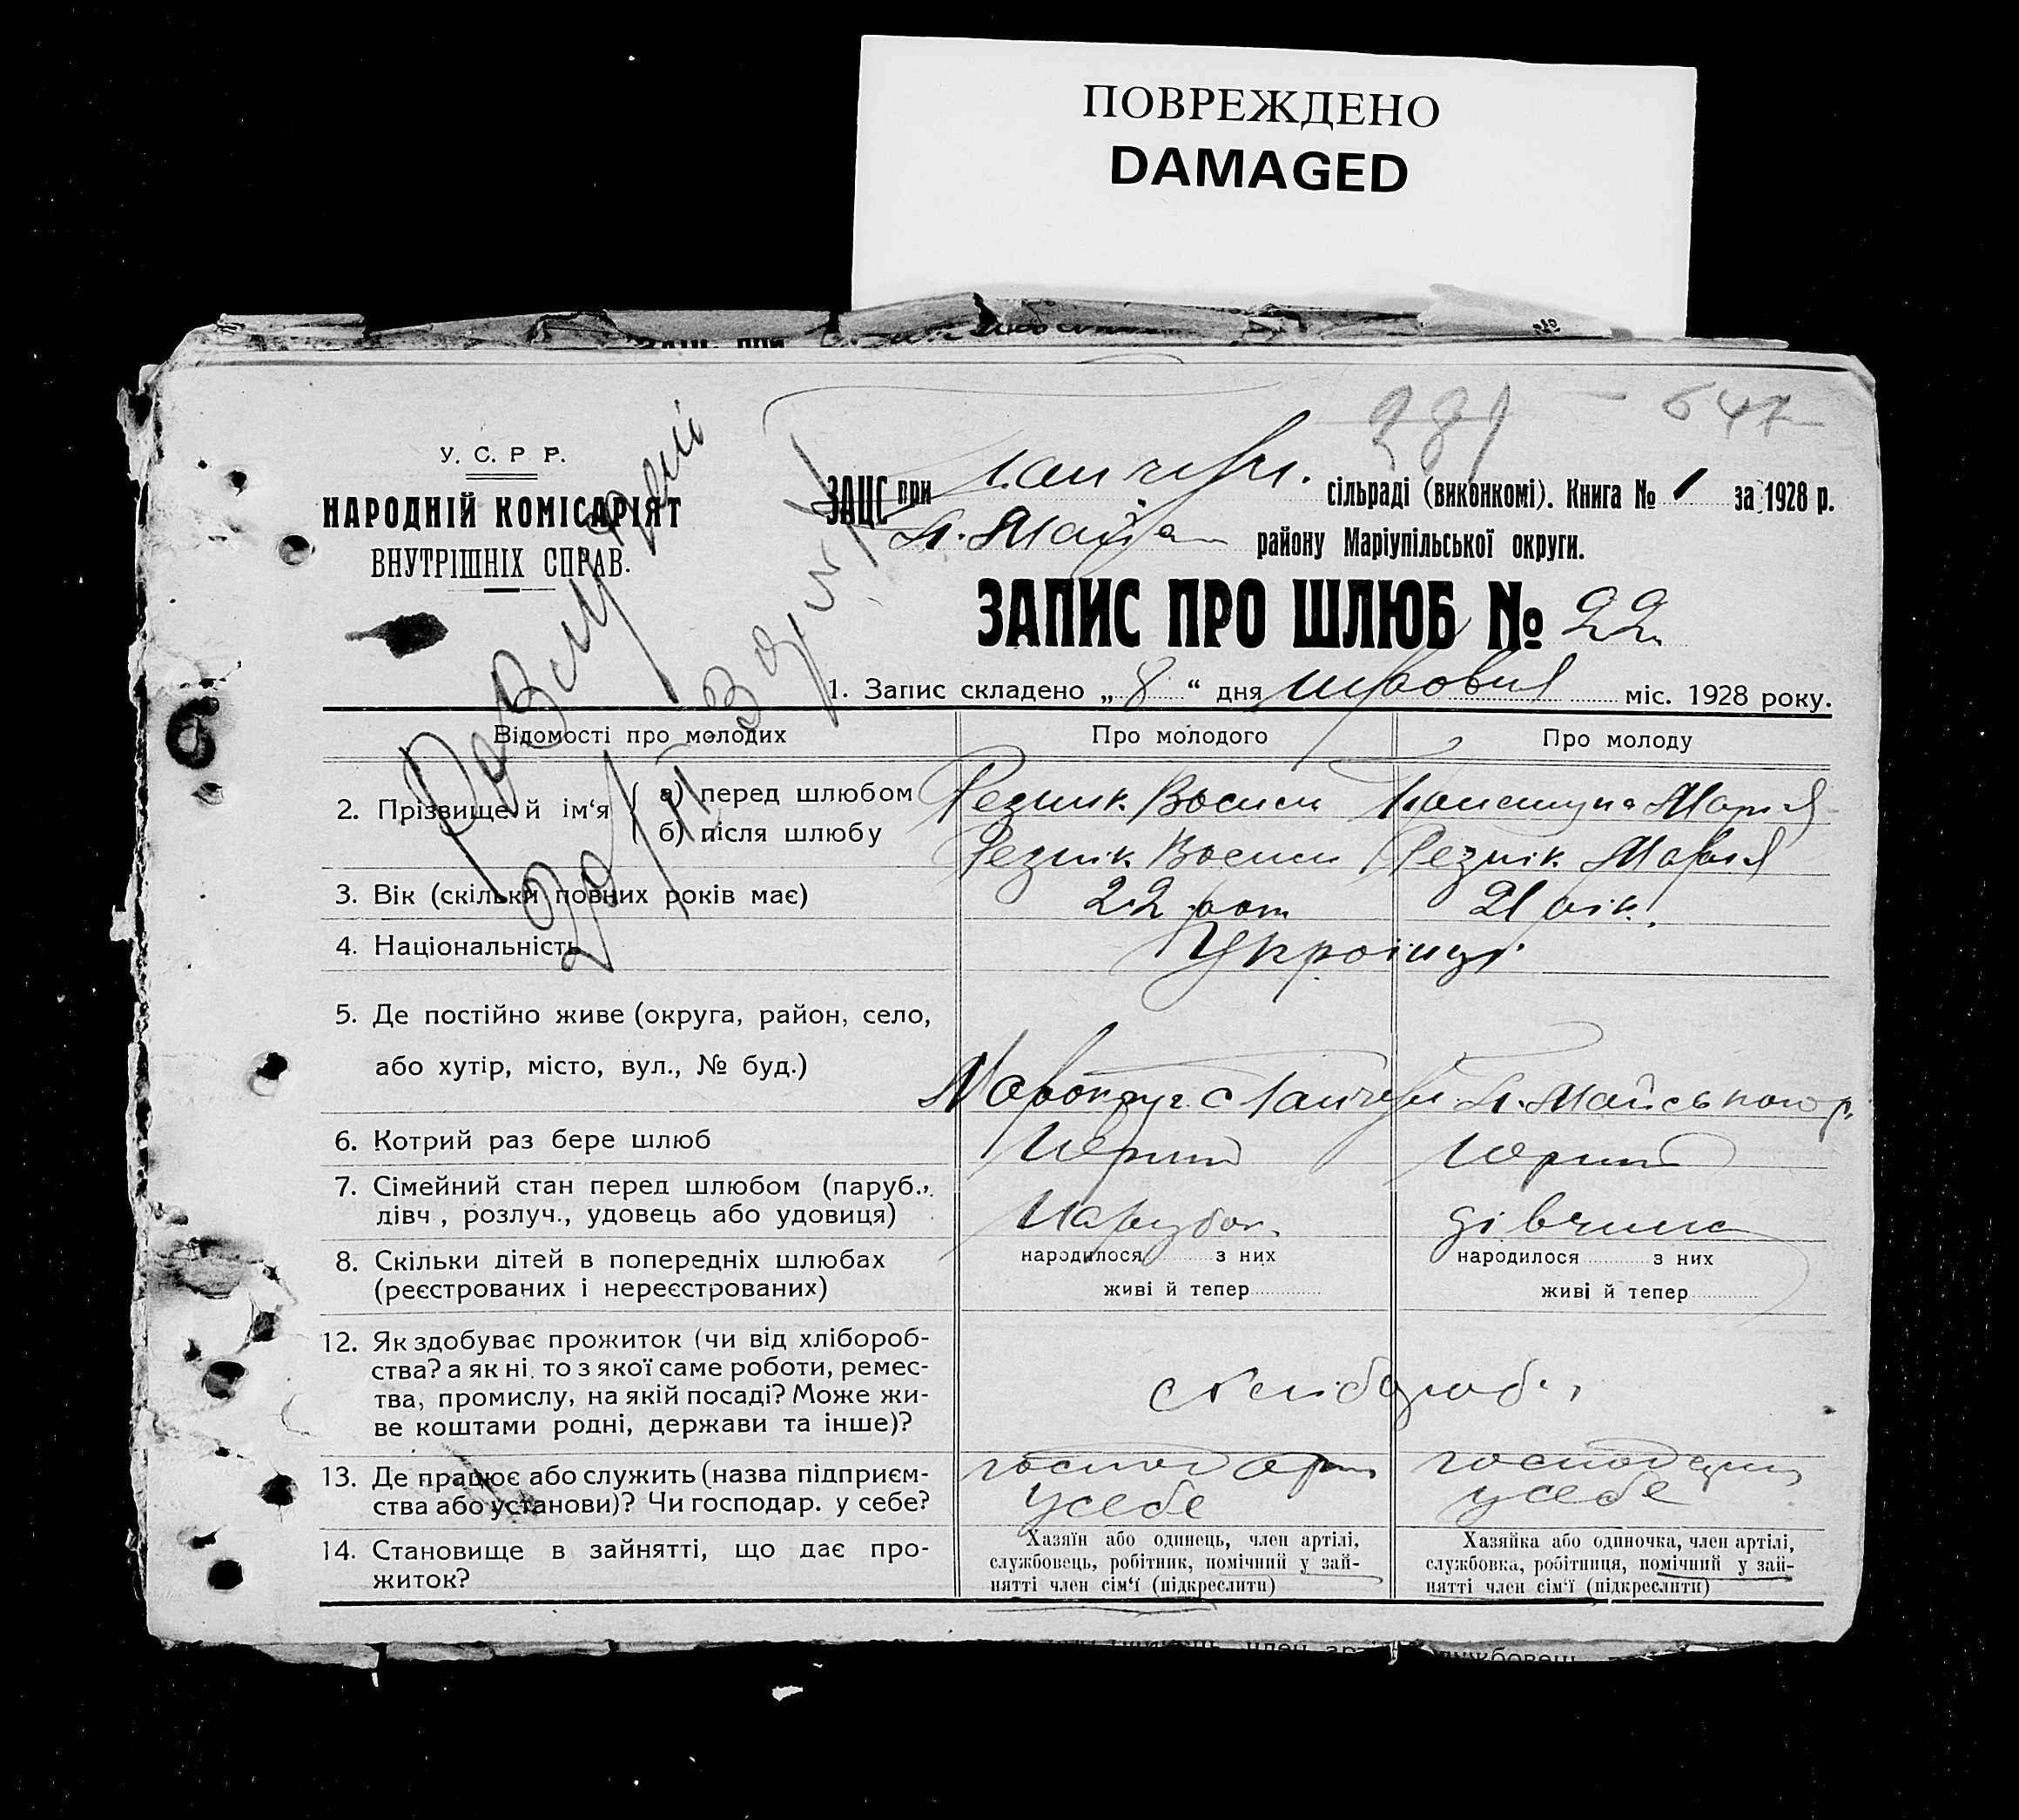 ПОВРЕЖДЕНО
DAMAGED
281 — 647
У. С. Р Р.
НАРОДНІЙ КОМІСАРІЯТ
ВНУТРІШНІХ СПРАВ.
ЗАЦС при сільраді (виконкомі). Книга № 1 за 1928 р.
Л. Майса району Маріупільської округи.
ЗАПИС ПРО ШЛЮБ № 22
1. Запис складено „ 8 “ дня міс. 1928 року.
Відомості про молодих Про молодого Про молоду
2. Прізвище й ім‘я { а) перед шлюбом Резник Васил Мария
б) після шлюбу Резнік Васил Резнік Мария
3. Вік (скільки повних років має) 22 рок 21 рік.
4. Національність Українці
5. Де постійно живе (округа, район, село,
або хутір, місто, вул., № буд.) Марокруг с Л. Майського р.
6. Котрий раз бере шлюб Перший Перший
7. Сімейний стан перед шлюбом (паруб.,
дівч , розлуч., удовець або удовиця) Парубок. дівчина
8. Скільки дітей в попередніх шлюбах народилося з них народилося з них
(реєстрованих і нереєстрованих) живі й тепер живі й тепер
12. Як здобуває прожиток (чи від хлібороб-
ства? а як ні. то з якої саме роботи, ремес-
тва, промислу, на якій посаді? Може жи-
ве коштами родні, держави та інше)?
13. Де працює або служить (назва підприєм-
ства або установи)? Чи господар. у себе? усебе усебе
14. Становище в зайнятті, що дає про-
житок?
Хазяїн або одинець, член артілі,
службовець, робітник, помічний у зай-
нятті член сім‘ї (підкреслити)
Хазяйка або одиночка, член артілі,
службовка, робітниця, помічний у зай-
нятті член сім‘ї (підкреслити)